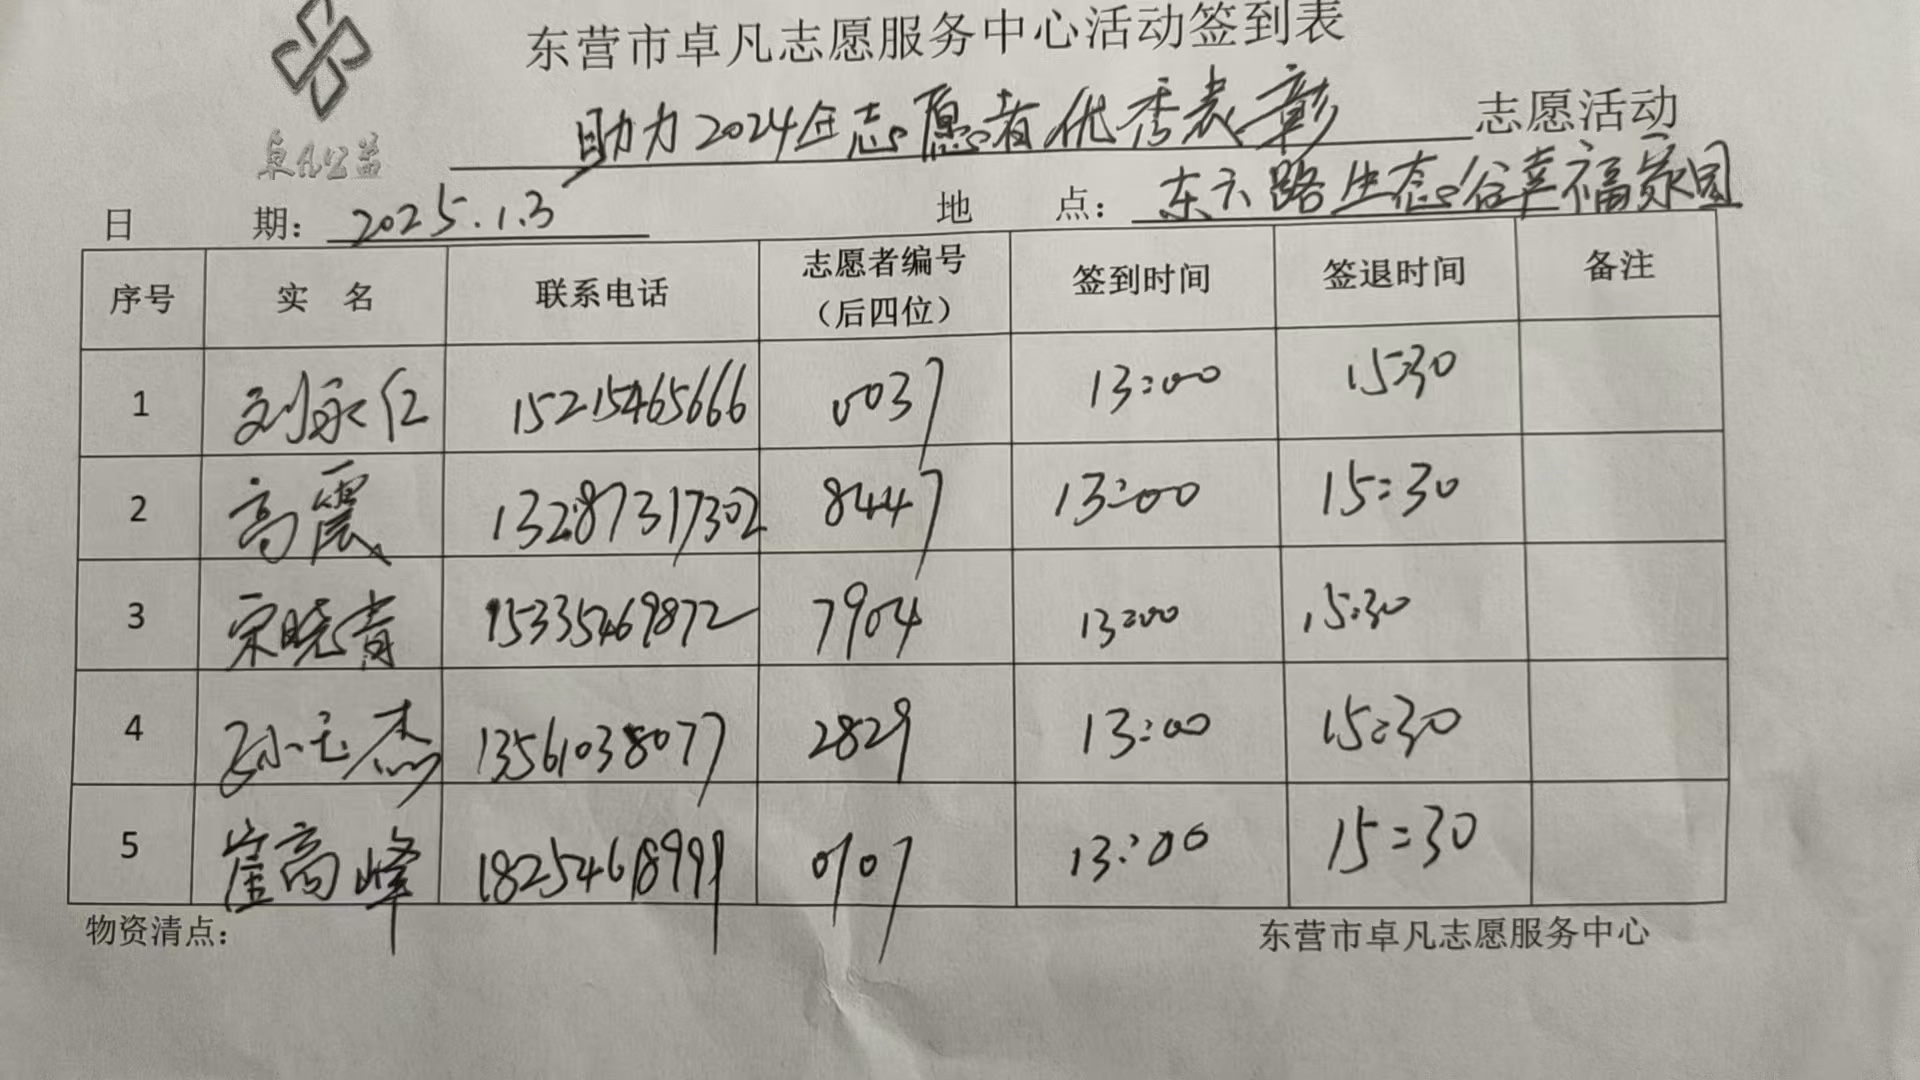 东营市卓凡志愿服务中心活动签到表
卓凡公益
助力2024年志愿者优秀表彰 志愿活动
日 期：2025.1.3 地 点：东六路生态谷幸福家园
序号 实 名 联系电话 志愿者编号（后四位） 签到时间 签退时间 备注
1 刘永仁 15215465666 0037 13:00 15:30
2 高震 13287317302 8447 13:00 15:30
3 宋晓青 15335469872 7904 13:00 15:30
4 孙玉杰 13561038077 2829 13:00 15:30
5 崔高峰 18254618999 0707 13:00 15:30
物资清点： 东营市卓凡志愿服务中心